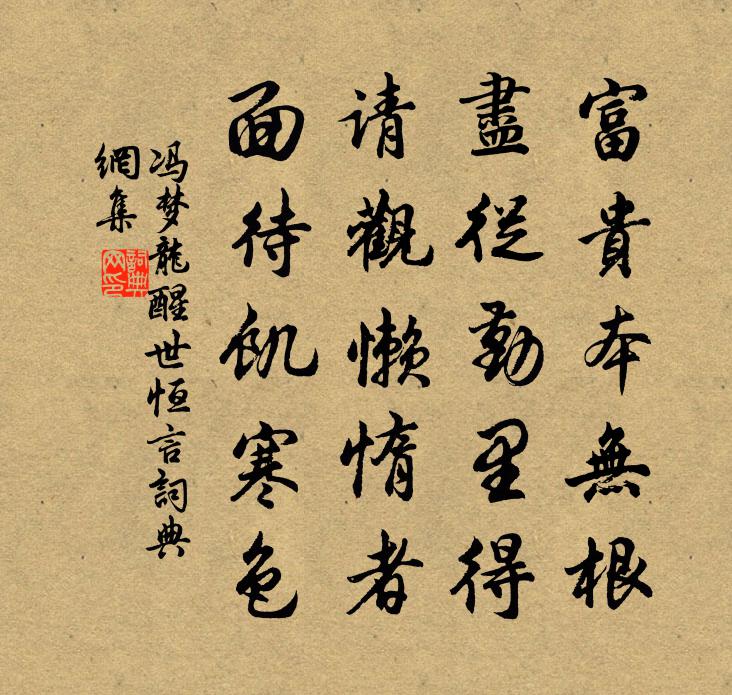 富貴本無根
盡從勤里得
请觀懒惰者
面待飢寒色
冯梦龍醒世恒言詞典
網集
詞典网印